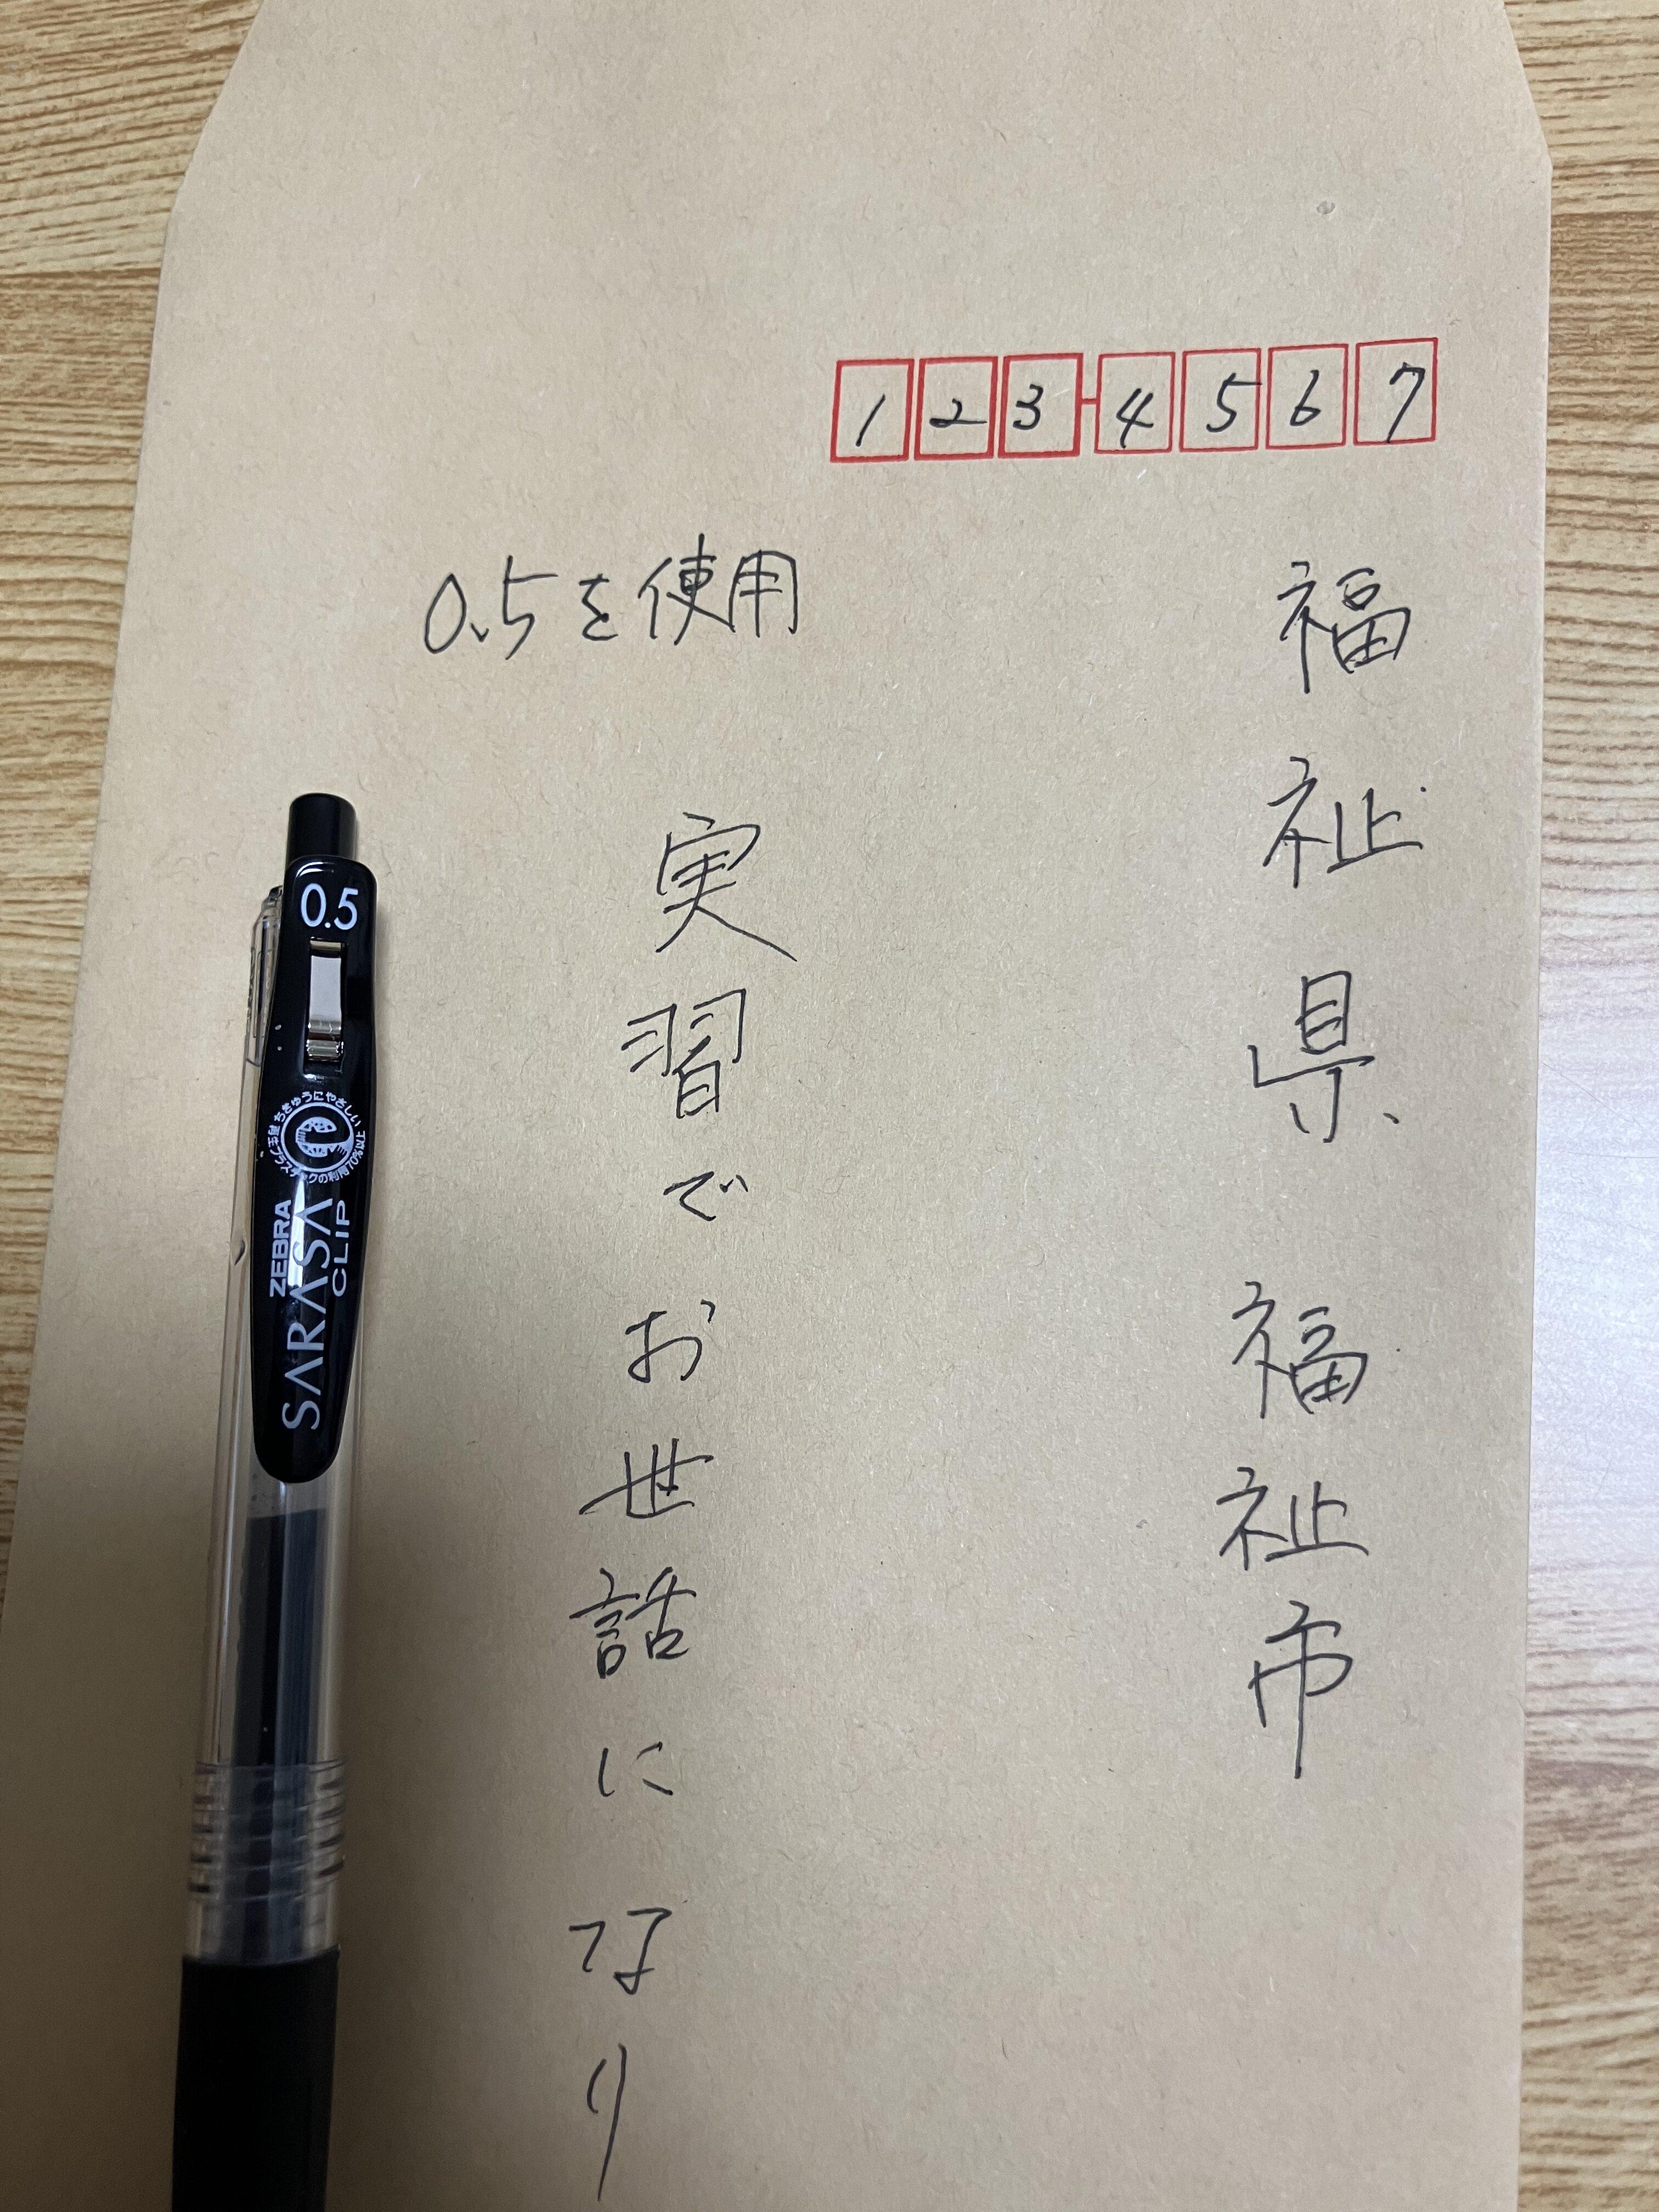 1234567
福祉県 福祉市
0.5を使用
実習でお世話になり
0.5
ちきゅうにやさしい
再生プラスチックの利用70%以上
ZEBRA
SARASA
CLIP